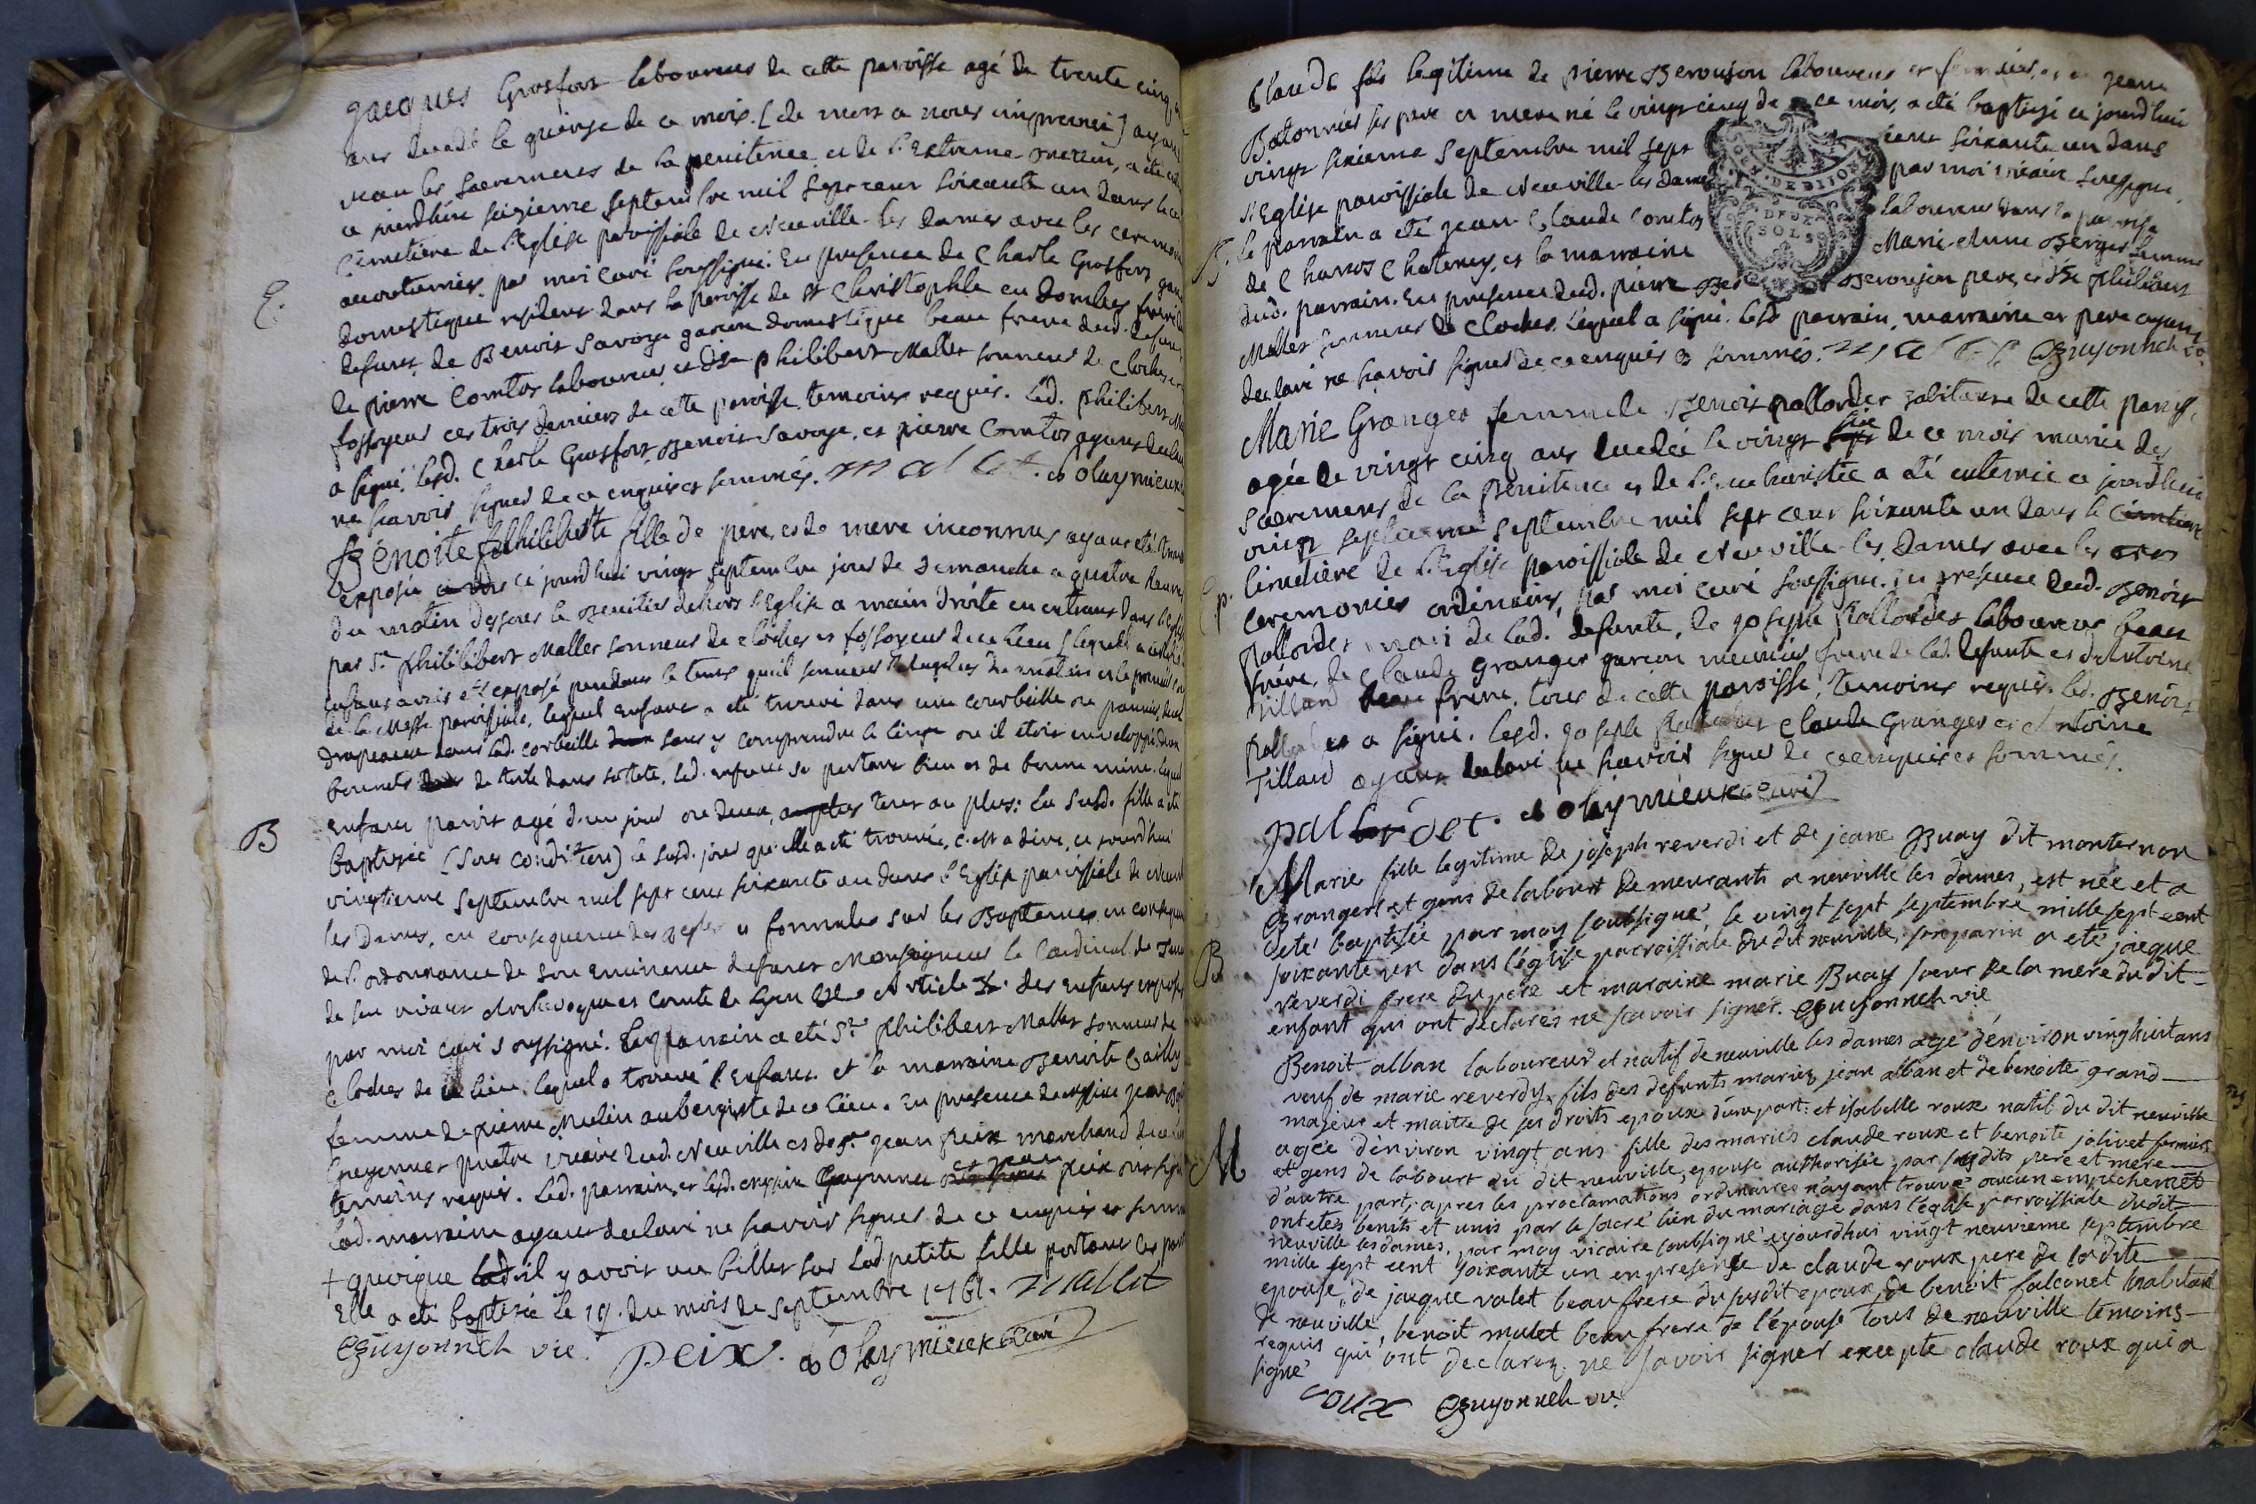 jacques Grosfort laboureur de cette paroisse agé de trente cinq
ans decedé le quinze de ce mois. [de mort a nous imprevue] ayant
receu les sacremens de la penitence et de l'Extreme-onction, a été
ce jourdhui seizieme septembre mil sept cent soixante un dans le
E.
Cimetiere de l'Eglise paroissiale de Neuville-les dames avec les ceremonies
accoutumées par moi curé soussigné. En presence de Charle Grosfort garçon
domestique resident dans la paroisse de St Christophle en Dombes frere du
defunt, de Benoit Savoye garcon domestique beau frere dud. defunt
de pierre Comtos laboureur et de Sr philibert Mallet sonneur de cloches et
fossoyeur ces trois derniers de cette paroisse temoins requis. Led. philibert
a signé. Lesd. Charle Grosfort, Benoit Savoye, et pierre Comtos ayans declaré
ne scavoir signer de ce enquis et sommés. mallet. d olaymieux
Benoite philiberte fille de pere, et de mere inconnus ayant été trouvée
exposée ce jourdhui vingt septembre jour de Demanche a quatre heures
du matin dessous le Benitier dehors l'Eglise a main droite en entrant dans l'Eglise
par Sr. philibert Mallet sonneur de cloches et fossoyeur de ce lieu [lequel
enfant avoit été exposé pendant le tems quil sonnoit l'angelus du matin et le premier
de la Messe paroissiale, lequel enfant a été trouvé dans une courbeille ou pannier,
drapeaux dans lad. corbeille sans y comprendre le linge ou il etoit enveloppé
bonnets de toile dans sa tete, led. enfant se portant bien et de bonne mine. Lequel
B
enfant paroit agé d'un jour ou deux, tout au plus: La susd. fille a été
baptisée (sous condition) le susd. jour qu'elle a été trouvée, c'est a dire, ce jourd'hui
vingtieme septembre mil sept cent soixante un dans l'Eglise paroissiale de
les Dames, en consequence des regles et formules sur les Baptemes, en consequence
de l'ordonnance de son eminence defunt Monseigneur le Cardinal de
de son vivant Archevoque et Comte de Lyon Article X. des enfans exposés
par moi curé soussigné. Le parrain a été Sr philibert Mallet sonneur de
cloches de ce lieu, lequel a trouvé l'Enfant et la marraine Benoite
femme de pierre Mulin aubergiste de ce lieu. En presence de messire jean
Guyennet pretre vicaire dud. Neuville et de Sr jean peix marchand de ce
temoins requis. Led. parrain, et lesd. messire Guyennet et jean peix ont signé
Lad. marraine ayant declaré ne scavoir signer de ce enquis et sommée
+ quoique il y avoit un billet sur lad. petite fille portant ces
Elle a été baptisée le 19. du mois de septembre 1761. mallet
Guyonneh vic. peix. d Olaymieux Curé
Claude fils legitime de pierre Beroujon laboureur et et de jeane
Batonnier ses pere et mere né le vingt cinq de ce mois, a été baptisé ce jourdhui
vingt sixieme septembre mil sept cent soixante un dans
l'Eglise paroissiale de Neuville-les dames par moi vicaire soussigné
B.
le parrain a été jean Claude Comtos laboureur dans la paroisse
de Chanos Chatenay, et la marraine Marie Anne Berger femme
dud. parrain. En presence dud. pierre Beroujon pere, et Sr philibert
Mallet sonneur de cloches. Lequel a signé. Lesd. parrain, marraine et pere ayant
declaré ne scavoir signer de ce enquis et sommés. mallet Guyonneh vic.
GEN. DE DIJON
DEUX
SOLS
Marie Granger femme de Benoit pallordet habitans de cette paroisse,
agée de vingt cinq ans decedée le vingt six de ce mois munie des
sacremens de la penitence et de l'eucharistie a été enterrée ce jourdhui
vingt septieme septembre mil sept cent soixante un dans le
Cimetière de l'Eglise paroissiale de Neuville-les Dames avec les
ceremonies ordinaires, par moi curé soussigné. En presence dud. Benoit
pallordet mari de lad. defunte, de joseph pallordet laboureur beau
frere, de claude Granger garcon meunier frere de lad. defunte et d'Antoine
Tilland beau frere, tous de cette paroisse, temoins requis. Led. Benoit
pallordet a signé. Lesd. joseph pallordet claude Granger et Antoine
Tilland ayant declaré ne scavoir signer de ce enquis et sommés.
palordet. d olaymieux curé
Marie fille legitime de joseph reverdi et de jeane Buay dit monternon
Grangers et gens de labourt demeurants a neuville les dames, est née et a
été baptisée par moy soubsigné, le vingt sept septembre mille sept cent
B
soixante un dans l'église paroissiale du dit neuville, son parin a eté jacque
reverdi frere du pere et maraine marie Buay soeur de la mere du dit
enfant qui ont declarés ne scavoir signer. Guyonneh vic
Benoit alban laboureur et natif de neuville les dames agé d'environ vinghuit ans
veuf de marie reverdy, fils des defunts mariez jean alban et de benoite grand
majeur et maitre de ses droits epoux d'une part: et isabelle roux natif du dit neuville
M
agée d'environ vingt ans fille des mariés claude roux et benoite jolivet fermiers
et gens de labourt du dit neuville, epouse authorisée par ses dits pere et mere
d'autre part; apres les proclamations ordinaires n'ayant trouvé aucun empechemet
ont etes benits et unis par le sacré lien du mariage dans l'église parroissiale dudit
neuville les dames, par moy vicaire soubsigné cejourdhui vingt neuvieme septembre
mille sept cent soixante un en presence de claude roux pere de la dite
epouse, de jacque valet beau frere du susdit epoux, de benoit falconet habitant
de neuville, benoit mulet beau frere de l'épouse tous de neuville temoins
requis qui ont declarez ne savoir signer excepte claude roux qui a
signé
roux Guyonneh vic.